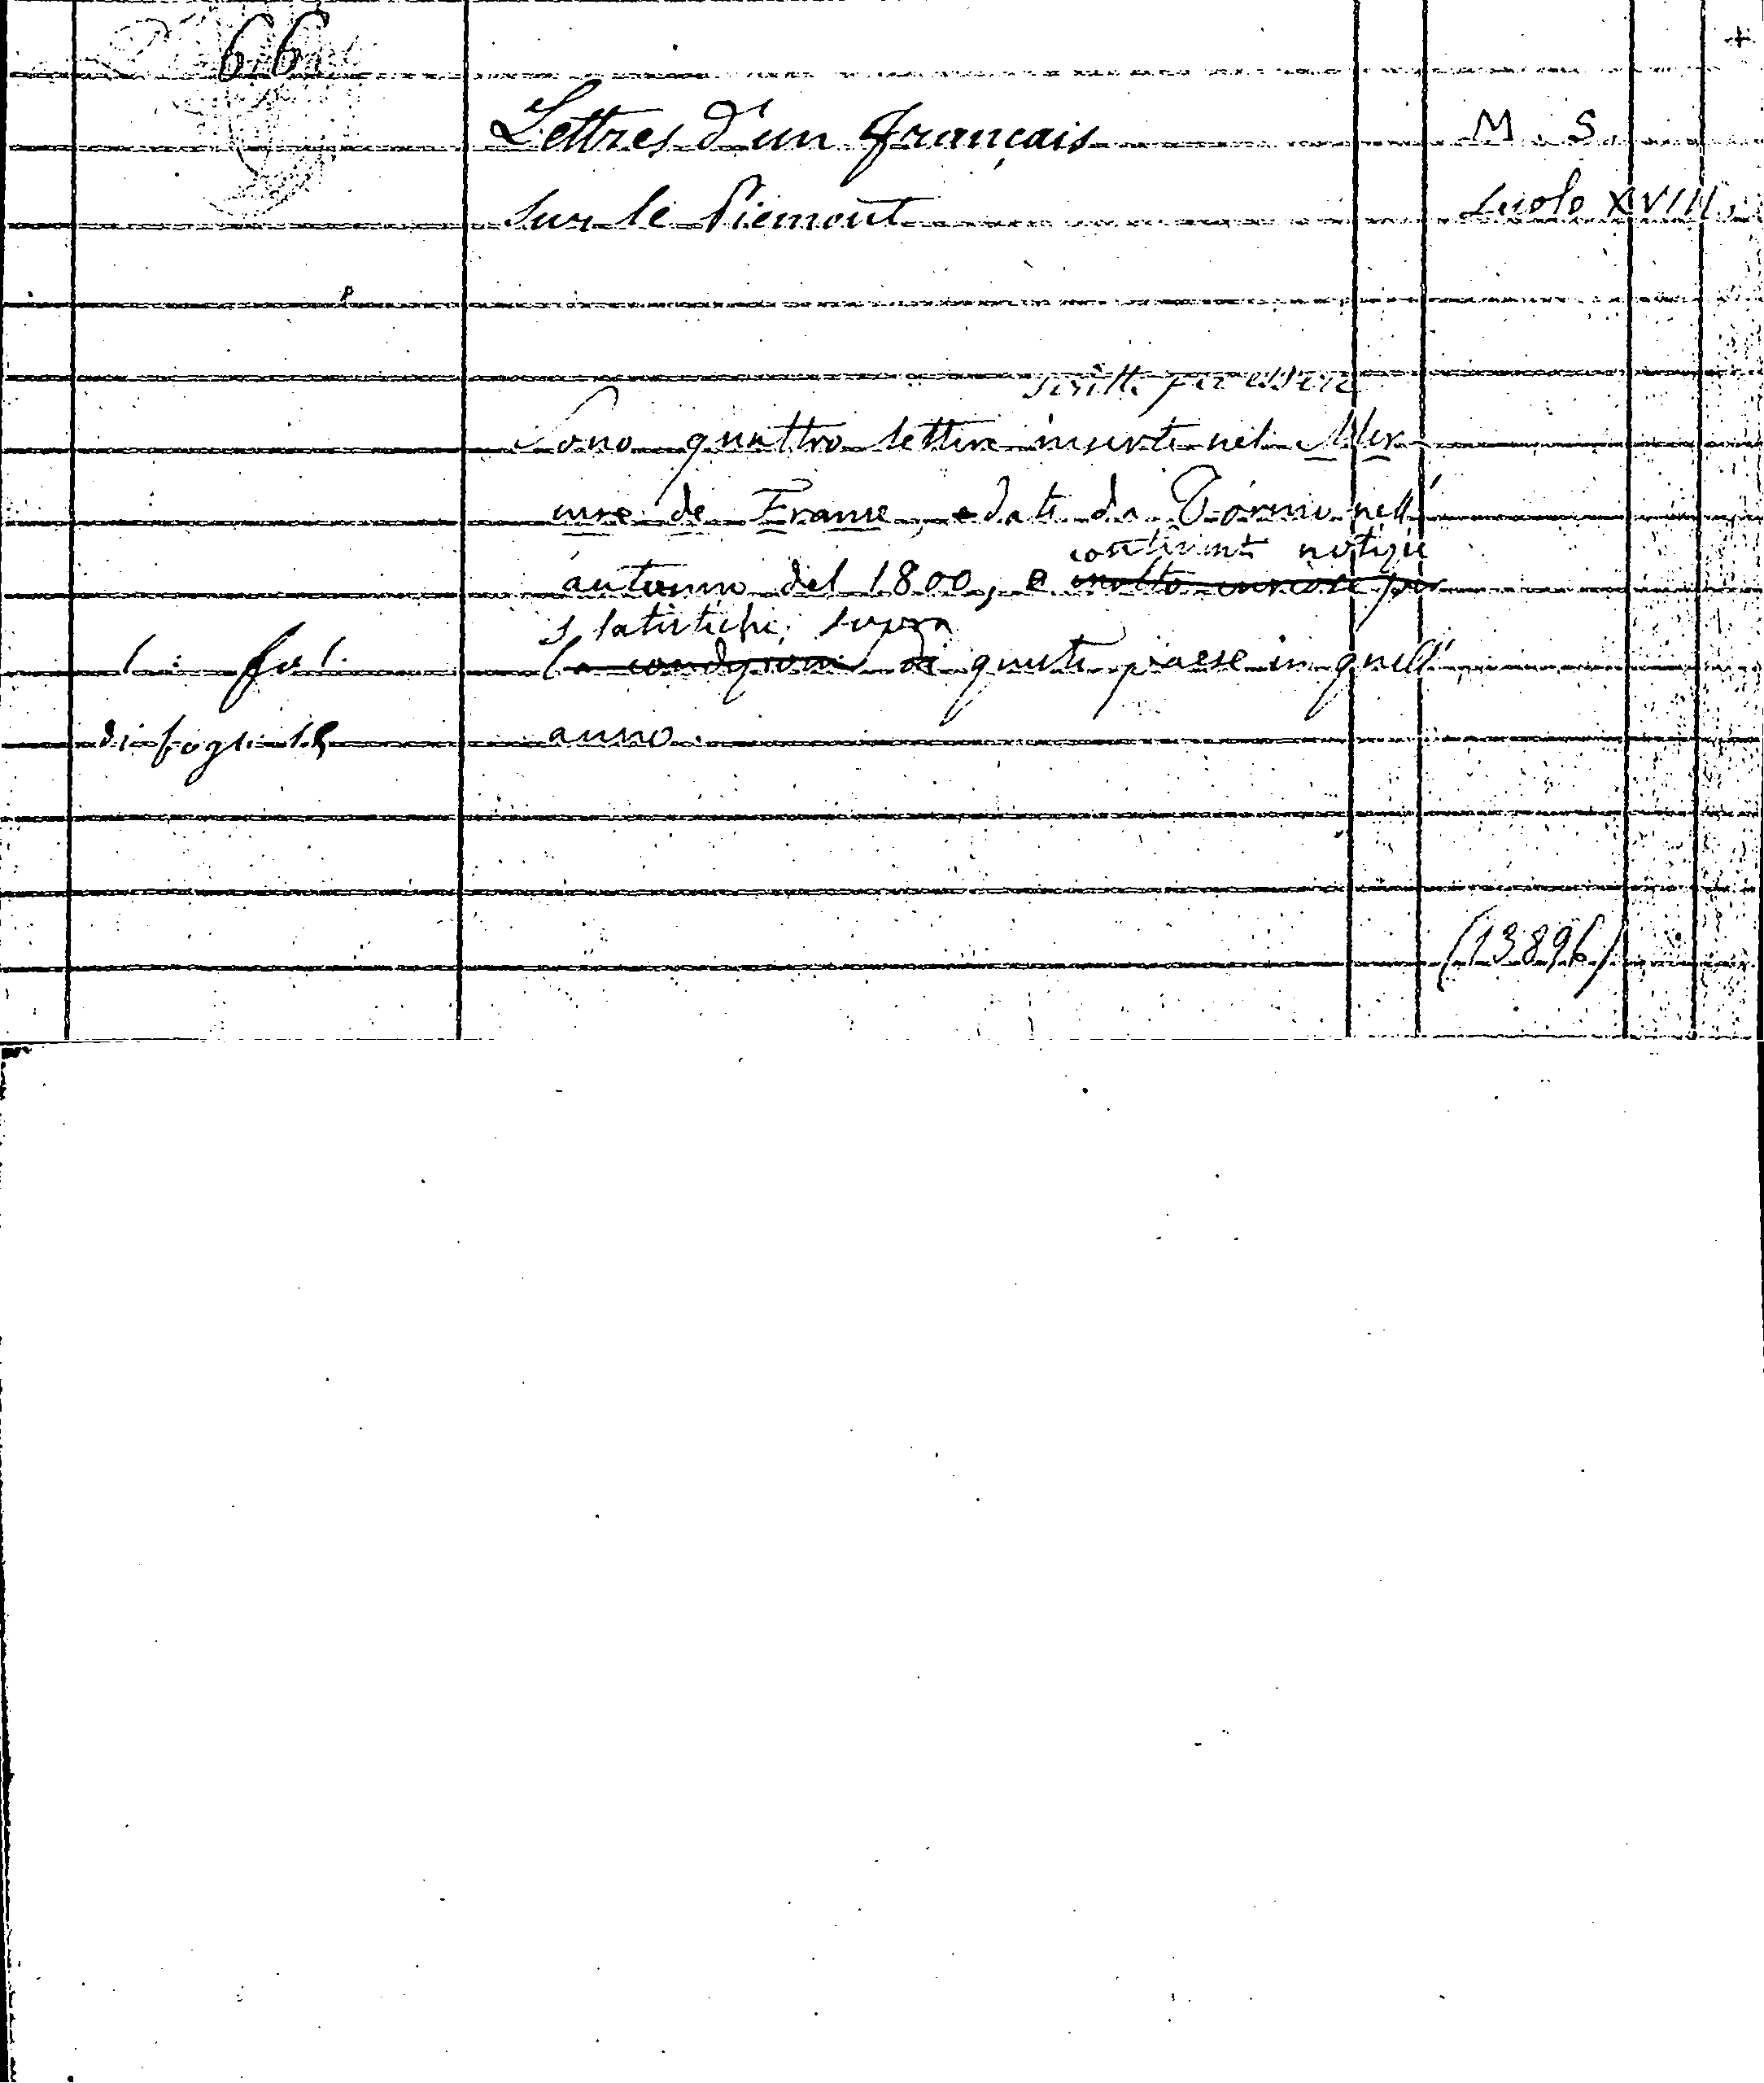 66
Lettres d'un Français M. S.
sur le Piemont Secolo XVIII.
scritte per essere
Sono quattro lettere inserte nel Mer
cure de France, e date da Torino nell'
contenenti notizie
autunno del 1800, e molto curiose per
statistiche sopra
la condizioni di questo paese in quell'
in fol.
di fogli 18 anno.
(13896)